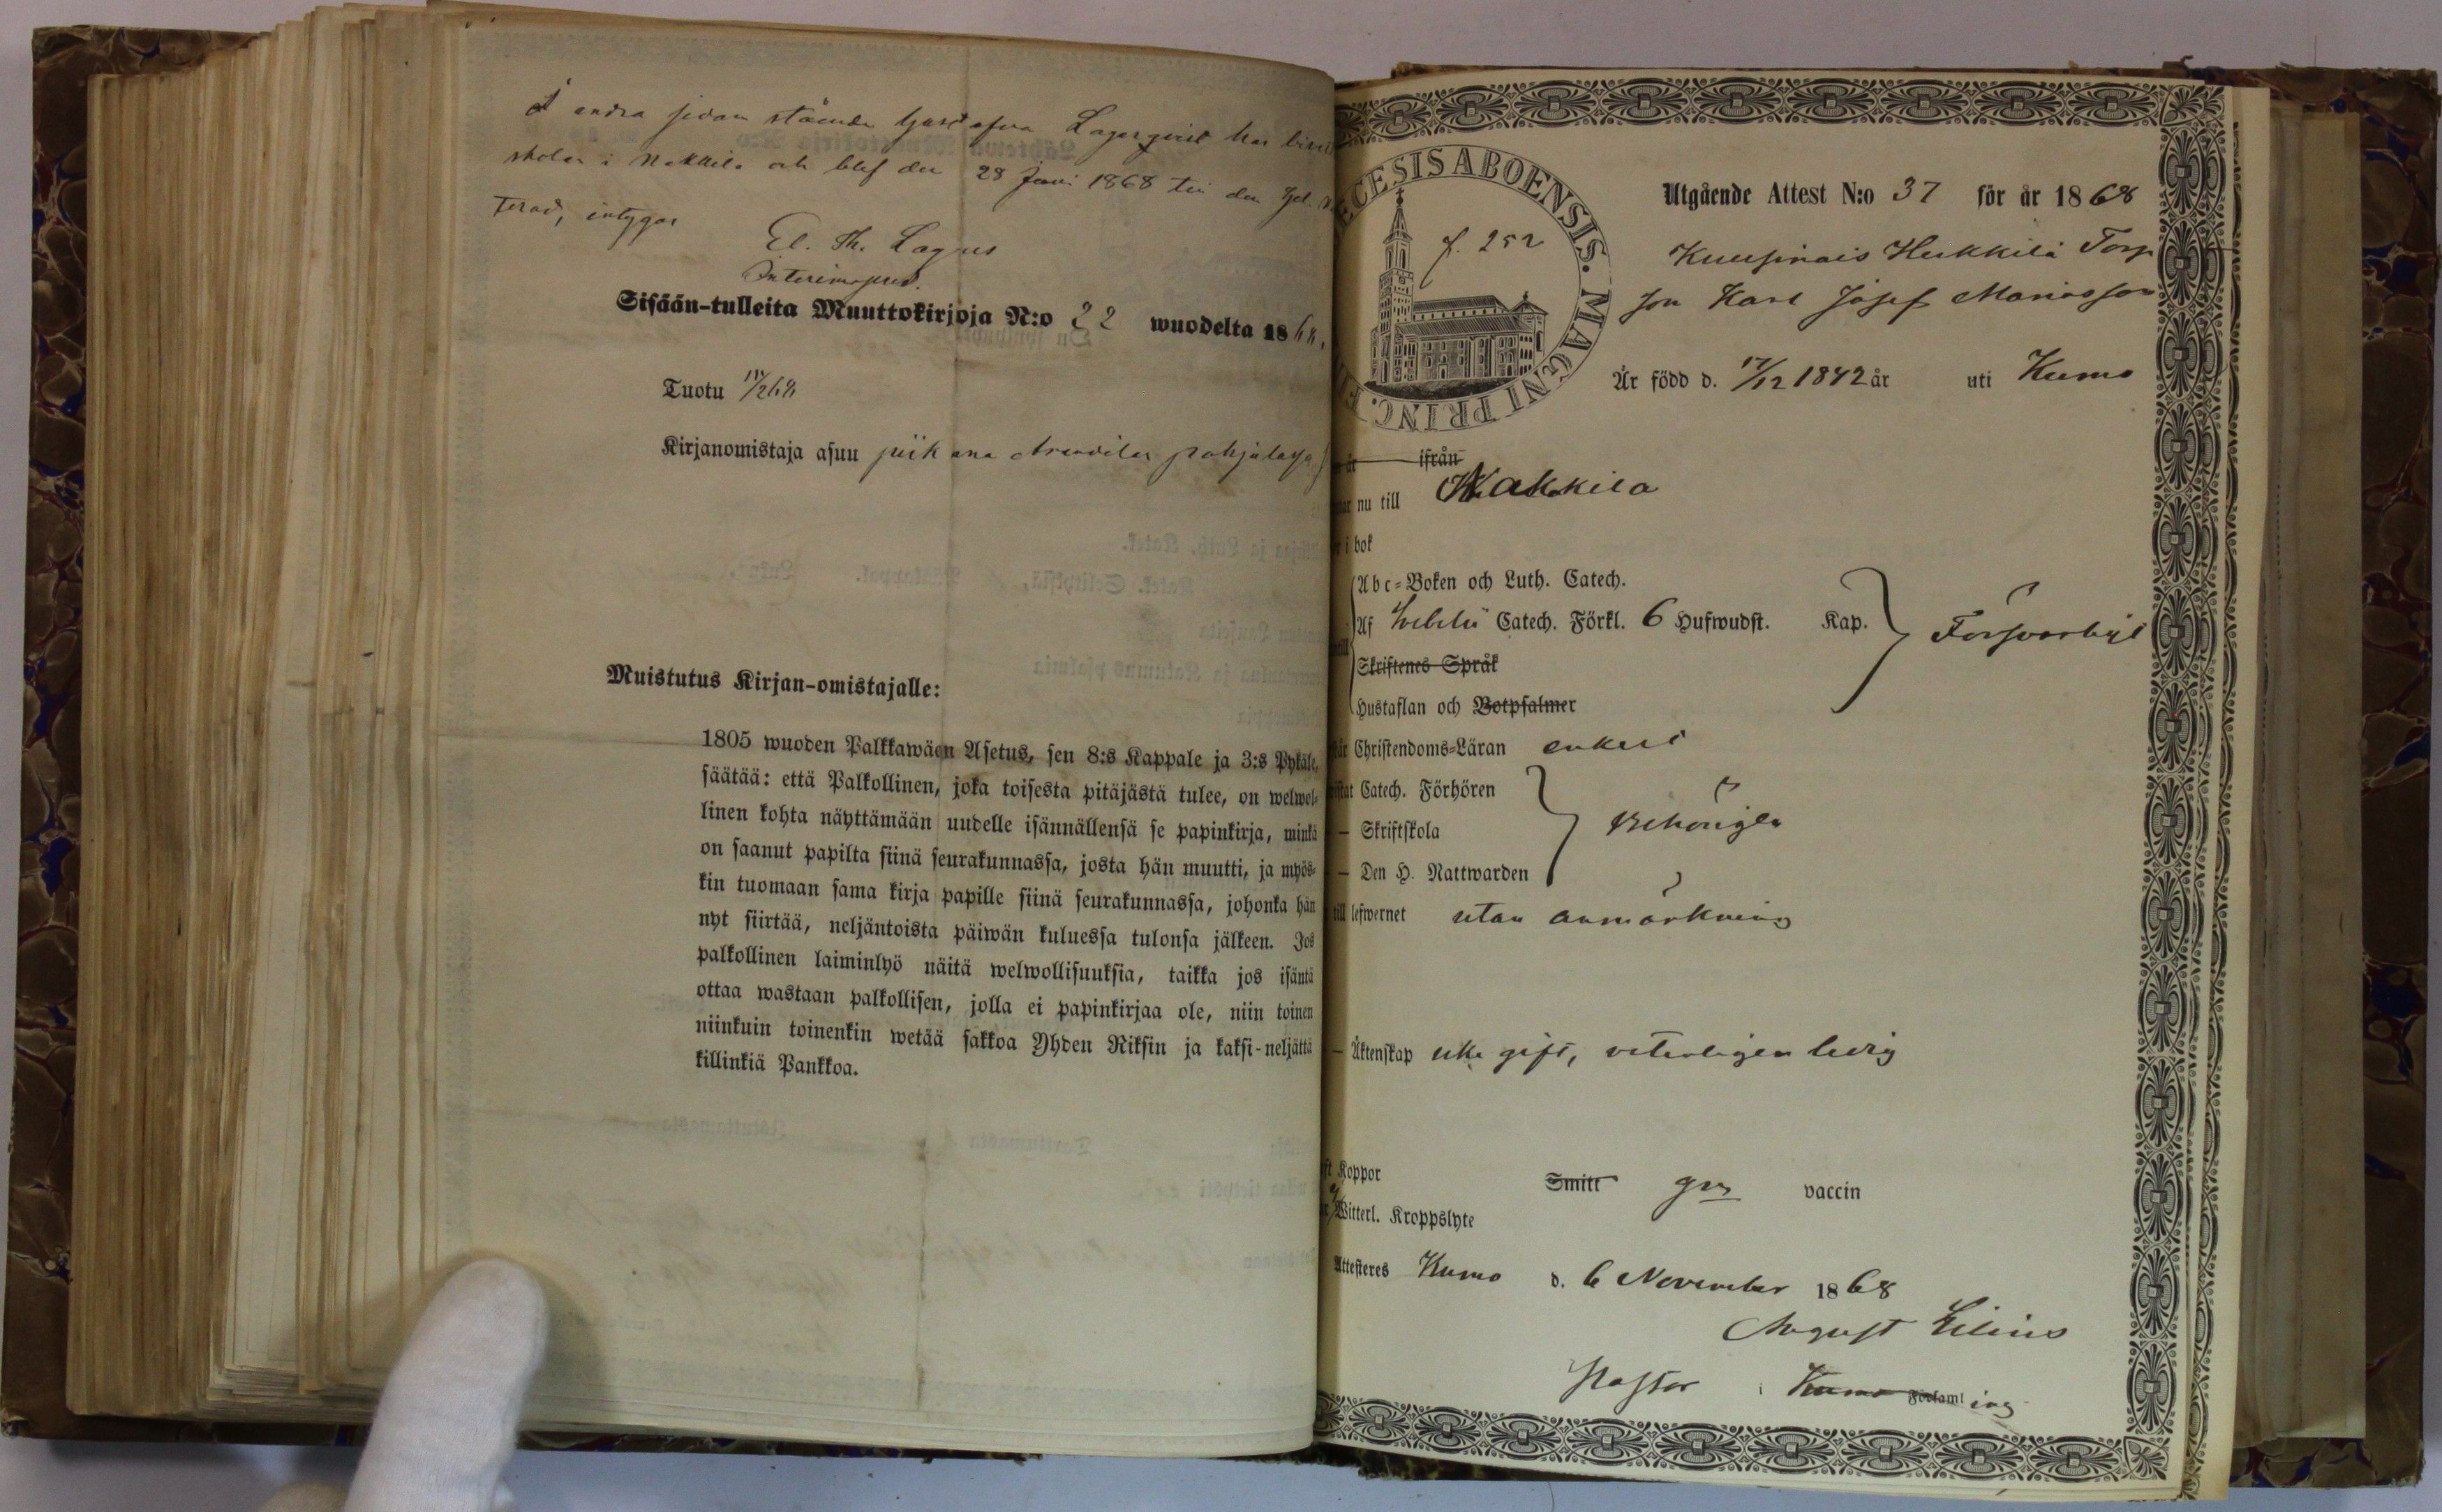 å andra sidan stående Gustafva Lagerqvist har bivist
skolan i Nakkila och blef den 28 Juni 1868 till den Hel. N
terad, intygar
El. Th. Lagus
Interimspred.
Sisään-tulleita Muuttokirjoja N:o 22 wuodelta 1868.
Tuotu 11/12 68
Kirjanomistaja asuu piikana Arantilan pohjalassa
Muistutus Kirjan-omistajalle:
1805 wuoden Palkkawäen Asetus, sen 8:s Kappale ja 3:s Pykäle,
säätää: että Palkollinen, joka toisesta pitäjästä tulee, on welwol-
linen kohta näyttämään uudelle isännällensä se papinkirja, minkä
on saanut papilta siinä seurakunnassa, josta hän muutti, ja myös-
kin tuomaan sama kirja papille siinä seurakunnassa, johonka hän
nyt siirtää, neljäntoista päiwän kuluessa tulonsa jälkeen. Jos
palkollinen laiminlyö näitä welwollisuuksia, taikka jos isäntä
ottaa wastaan palkollisen, jolla ei papinkirjaa ole, niin toinen
niinkuin toinenkin wetää sakkoa Yhden Riksin ja kaksi-neljättä
killinkiä Pankkoa.
CESIS ABOENSIS. MAGNI PRINC. FI
f. 252
Utgående Attest N:o 37 för år 1868
Kuusinais Heikkilä Torp
son Karl Josef Mariasson
Är född d. 17/12 1842 år uti Kumo
är ifrån
nu till Nakkila
i bok
Abc-Boken och Luth. Catech.
Af Svebelii Catech. Förkl. 6 Hufwudst. Kap.
Försvarligt
Skriftenes Språk
Hustaflan och Botpsalmer
Christendoms-Läran enkelt
Catech. Förhören
— Skriftskola
behörigen
— Den H. Nattwarden
till lefwernet utan anmärkning
— Äktenskap icke gift, veterligen ledig
Koppor Smitt gm vaccin
Witterl. Kroppslyte
Attesteres Kumo d. 6 November 1868
August Lilius
Pastor i Kumo Församling